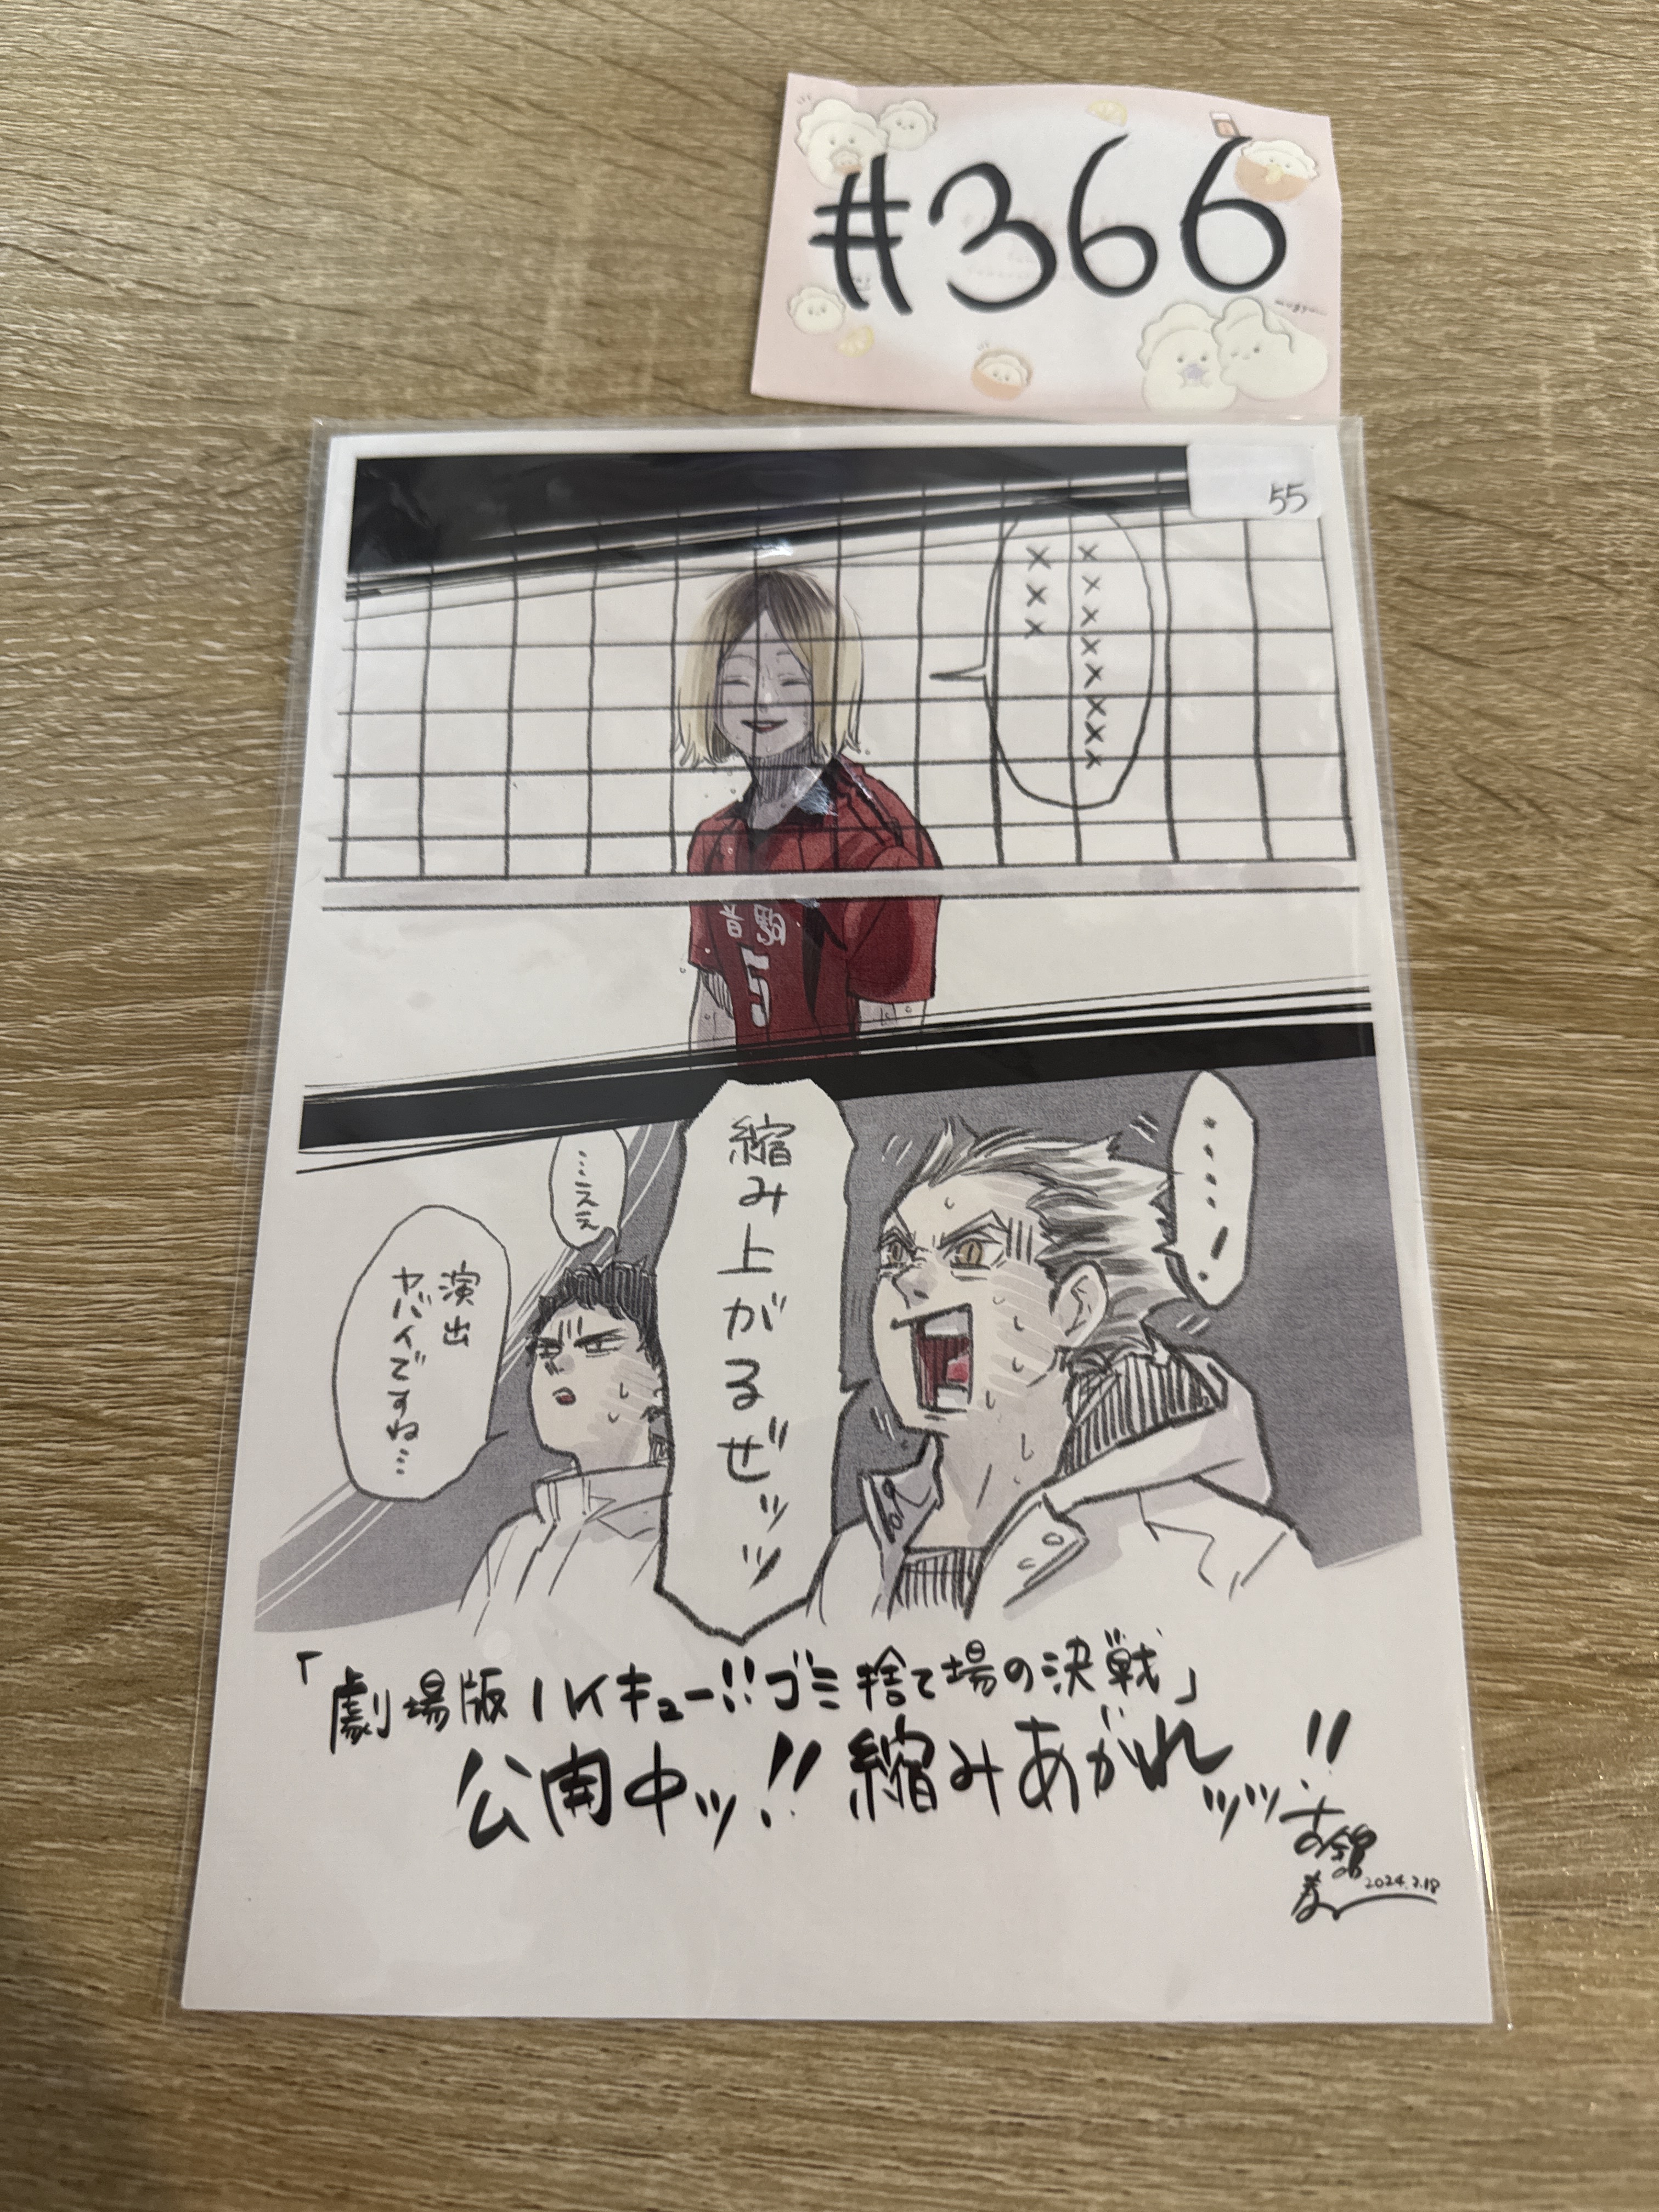 #366
55
×××××××××
×××
音駒
5
……!
縮み上がるぜッッッ
…ええ
演出
ヤバイですね…
「劇場版ハイキュー!!ゴミ捨て場の決戦」
公開中ッ!!縮みあがれッッ!!
古舘
春一
2024.2.18